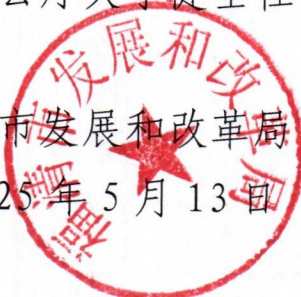 市发展和改革局
25年5月13日
福清市发展和改革局